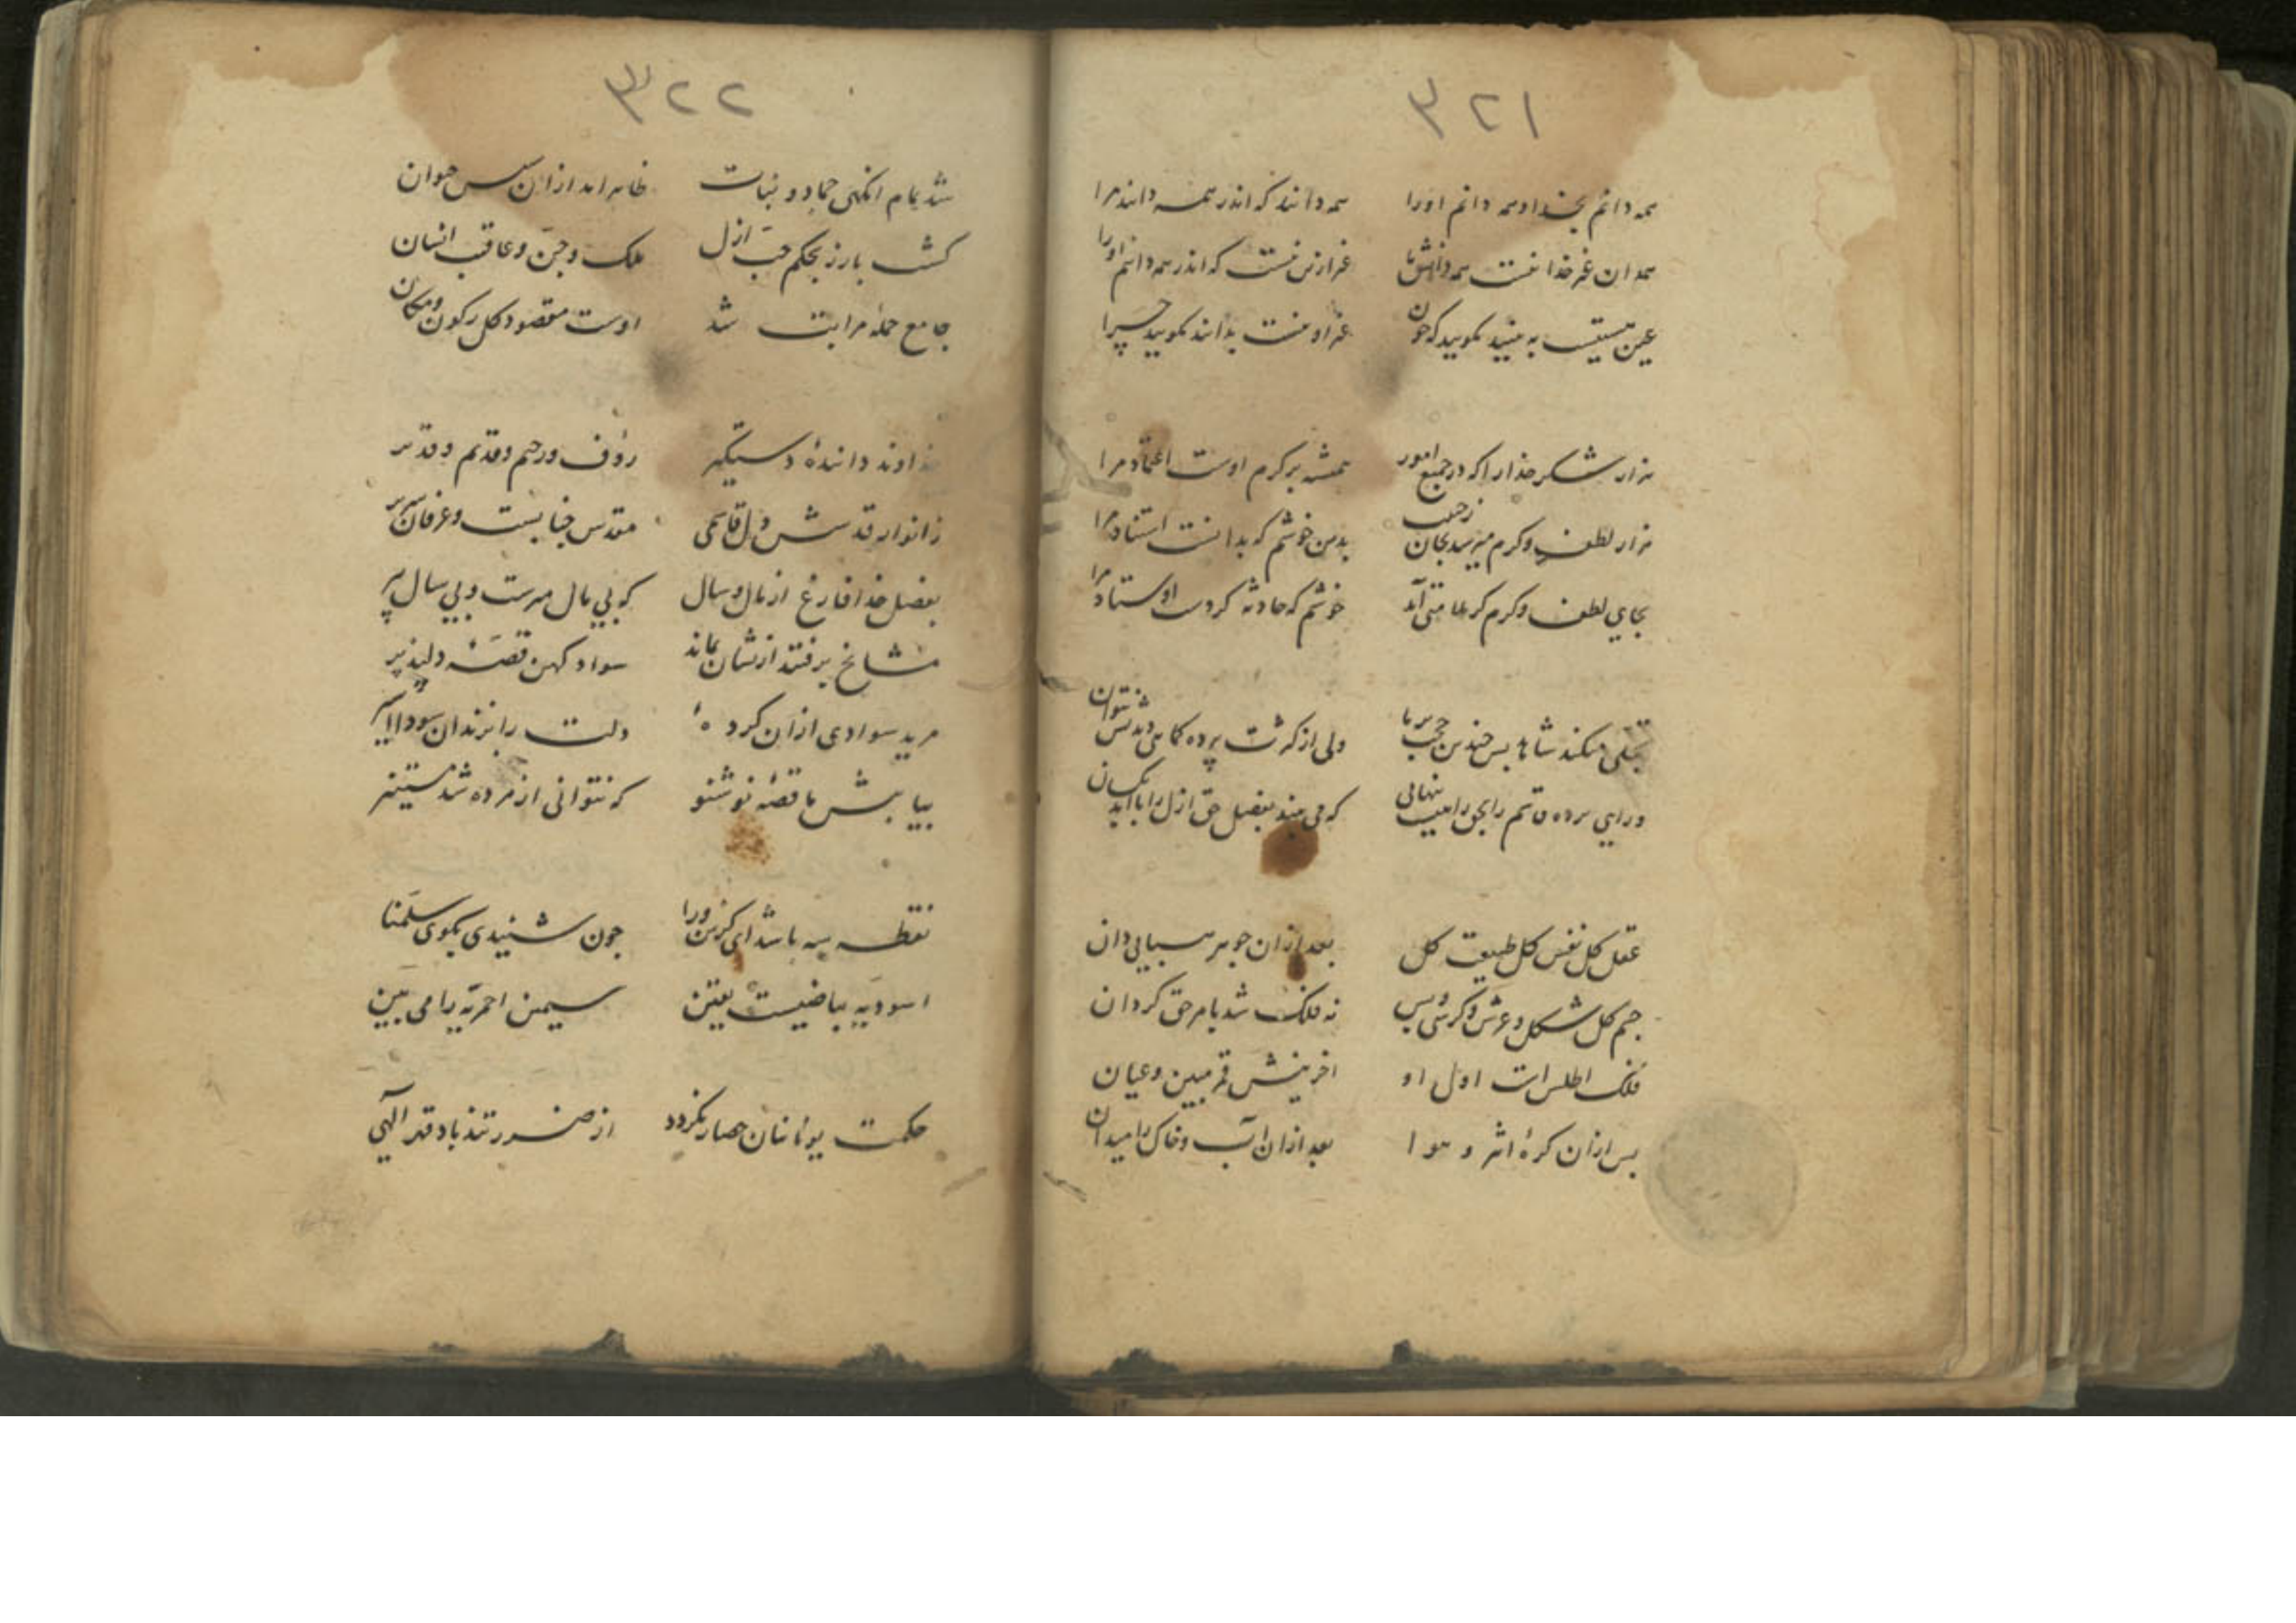 ۳۲۱
همه دانم بخدا همه دانم اورا همه دانند که اندر همه دانند مرا
همه ان غیر خدا نیست همه غیر ازین نیست که اندر همه دانم اورا
عین به بینید بگویید که چون غیر او نیست بدانند بگویید چرا
هزار شکر خدارا که در جمیع امور همیشه بر کرم اوست اعتماد مرا
هزار لطف و کرم میرسد بجان بدین خوشم که بدانست استناد مرا
بجای لطف و کرم کر ملامتی آید خوشم که حادثه کردست اوستاد مرا
تجلی میکند شاها پس چندین حجب بر ما ولی از کثرت پرده نتوان
ورای پرده قاسم را بحق کی می بیند بفضل حق ازل را با ابد یکسان
عقل کل نفس کل طبیعت کل بعد ازان جوهر هبایی دان
جسم کل شکل و عرش و کرسی پس نه فلک شد بامر حق کردان
فلک اطلس است اول او اخرینش قمر مبین و عیان
پس ازان کرهٔ اثیر و هوا بعد ازان آب و خاک را میدان
۳۲۲
شد تمام انکهی جماد و نبات ظاهر امد ازان سپس حیوان
کشت بارز بحکم حبّ ازل ملک و جن و عاقبت انسان
جامع جمله مراتب شد اوست مقصود کل ز کون و مکان
خداوند دانندهٔ دستگیر رؤف و رحیم و قدیم و قدیر
ز انوار قدسش دل قاسمی مقدس جنابست و عرفان
بفضل خدا فارغ از مال و سال که بی مال میرست و بی سال پیر
مشایخ برفتند ازیشان بماند سواد کهن قصهٔ دلپذیر
مرید سوادی ازان کرده دلت را بزندان سودا اسیر
بیا پیش ما قصهٔ نو شنو که نتوانی از مرده شد مستنیر
نقطه سه باشد ای کزین ورا چون شنیدی بکوی سلّمنا
اسودیه بیاضیست یقین سیمین احمریّه را می بین
حکمت یونانیان حصار نکردد از ضرر تندباد قهر الهی